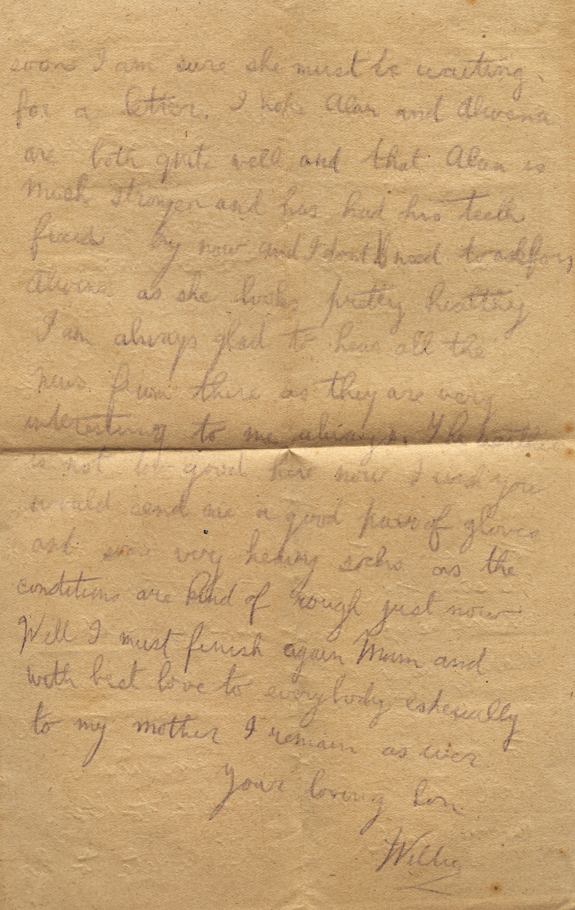 soon I am sure she must be waiting
for a letter. I hope Alan and Alwena
are both quite well and that Alan is
much stronger and has had his teeth
fixed by now and I dont need to ask for
Alwena as she looks pretty healthy
I am always glad to hear all the
news from there as they are very
interesting to me always. The
is not too good here now I wish you
would send me a good pair of gloves
and some very heavy socks as the
conditions are kind of rough just now
Well I must finish again Mum and
with best love to everybody especially
to my mother I remain as ever
Your loving Son.
Willie